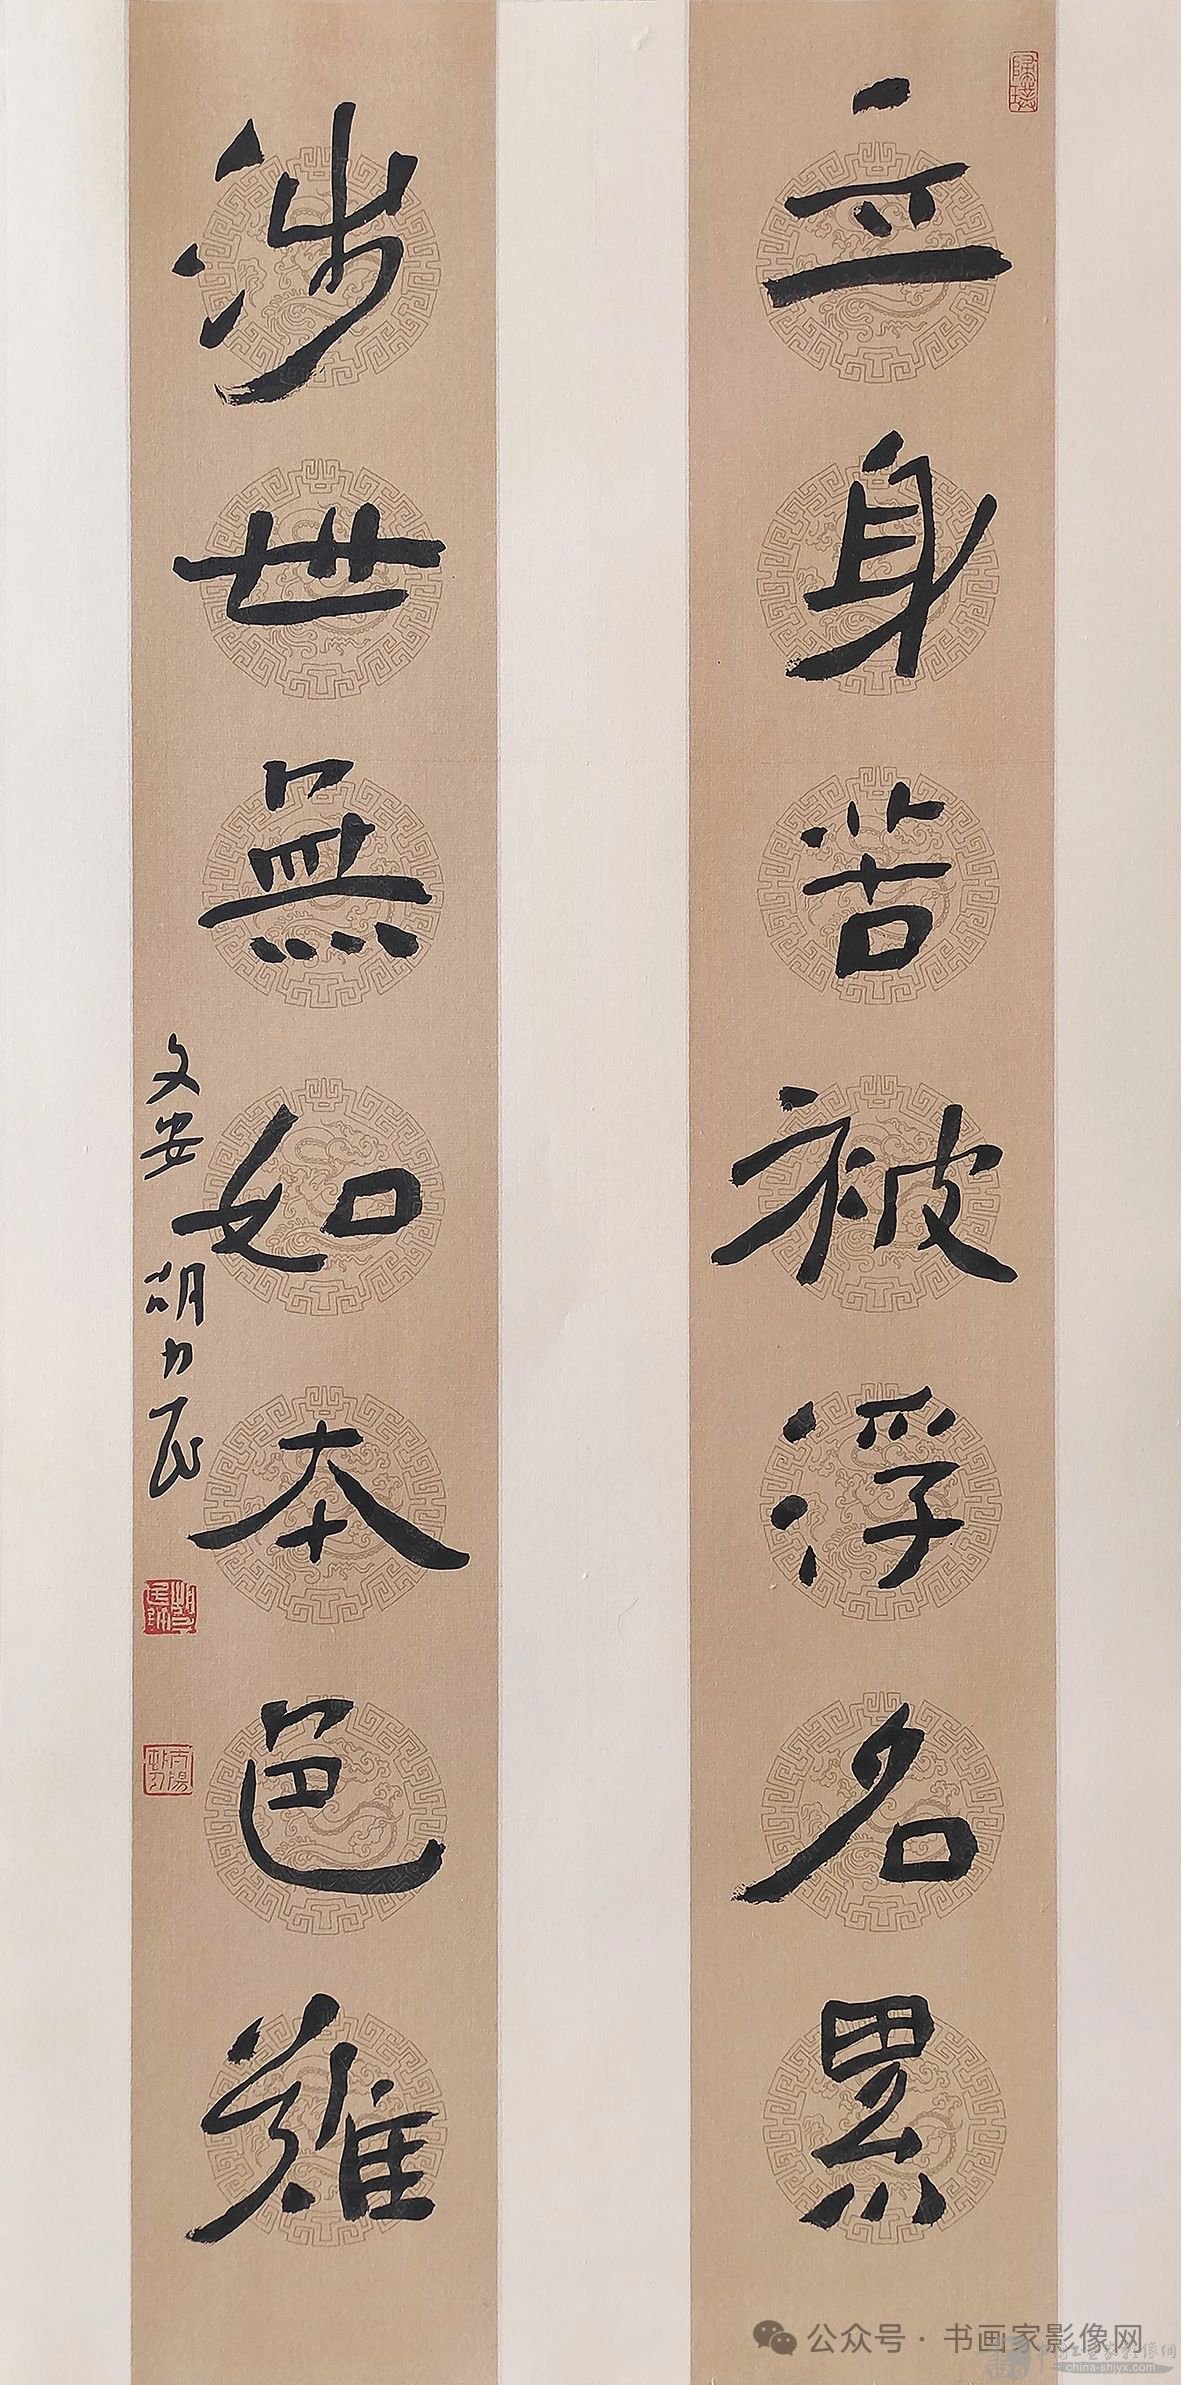 立身苦被浮名累
涉世無如本色難
文安 胡力民
公众号 · 书画家影像网
china-shjyx.com